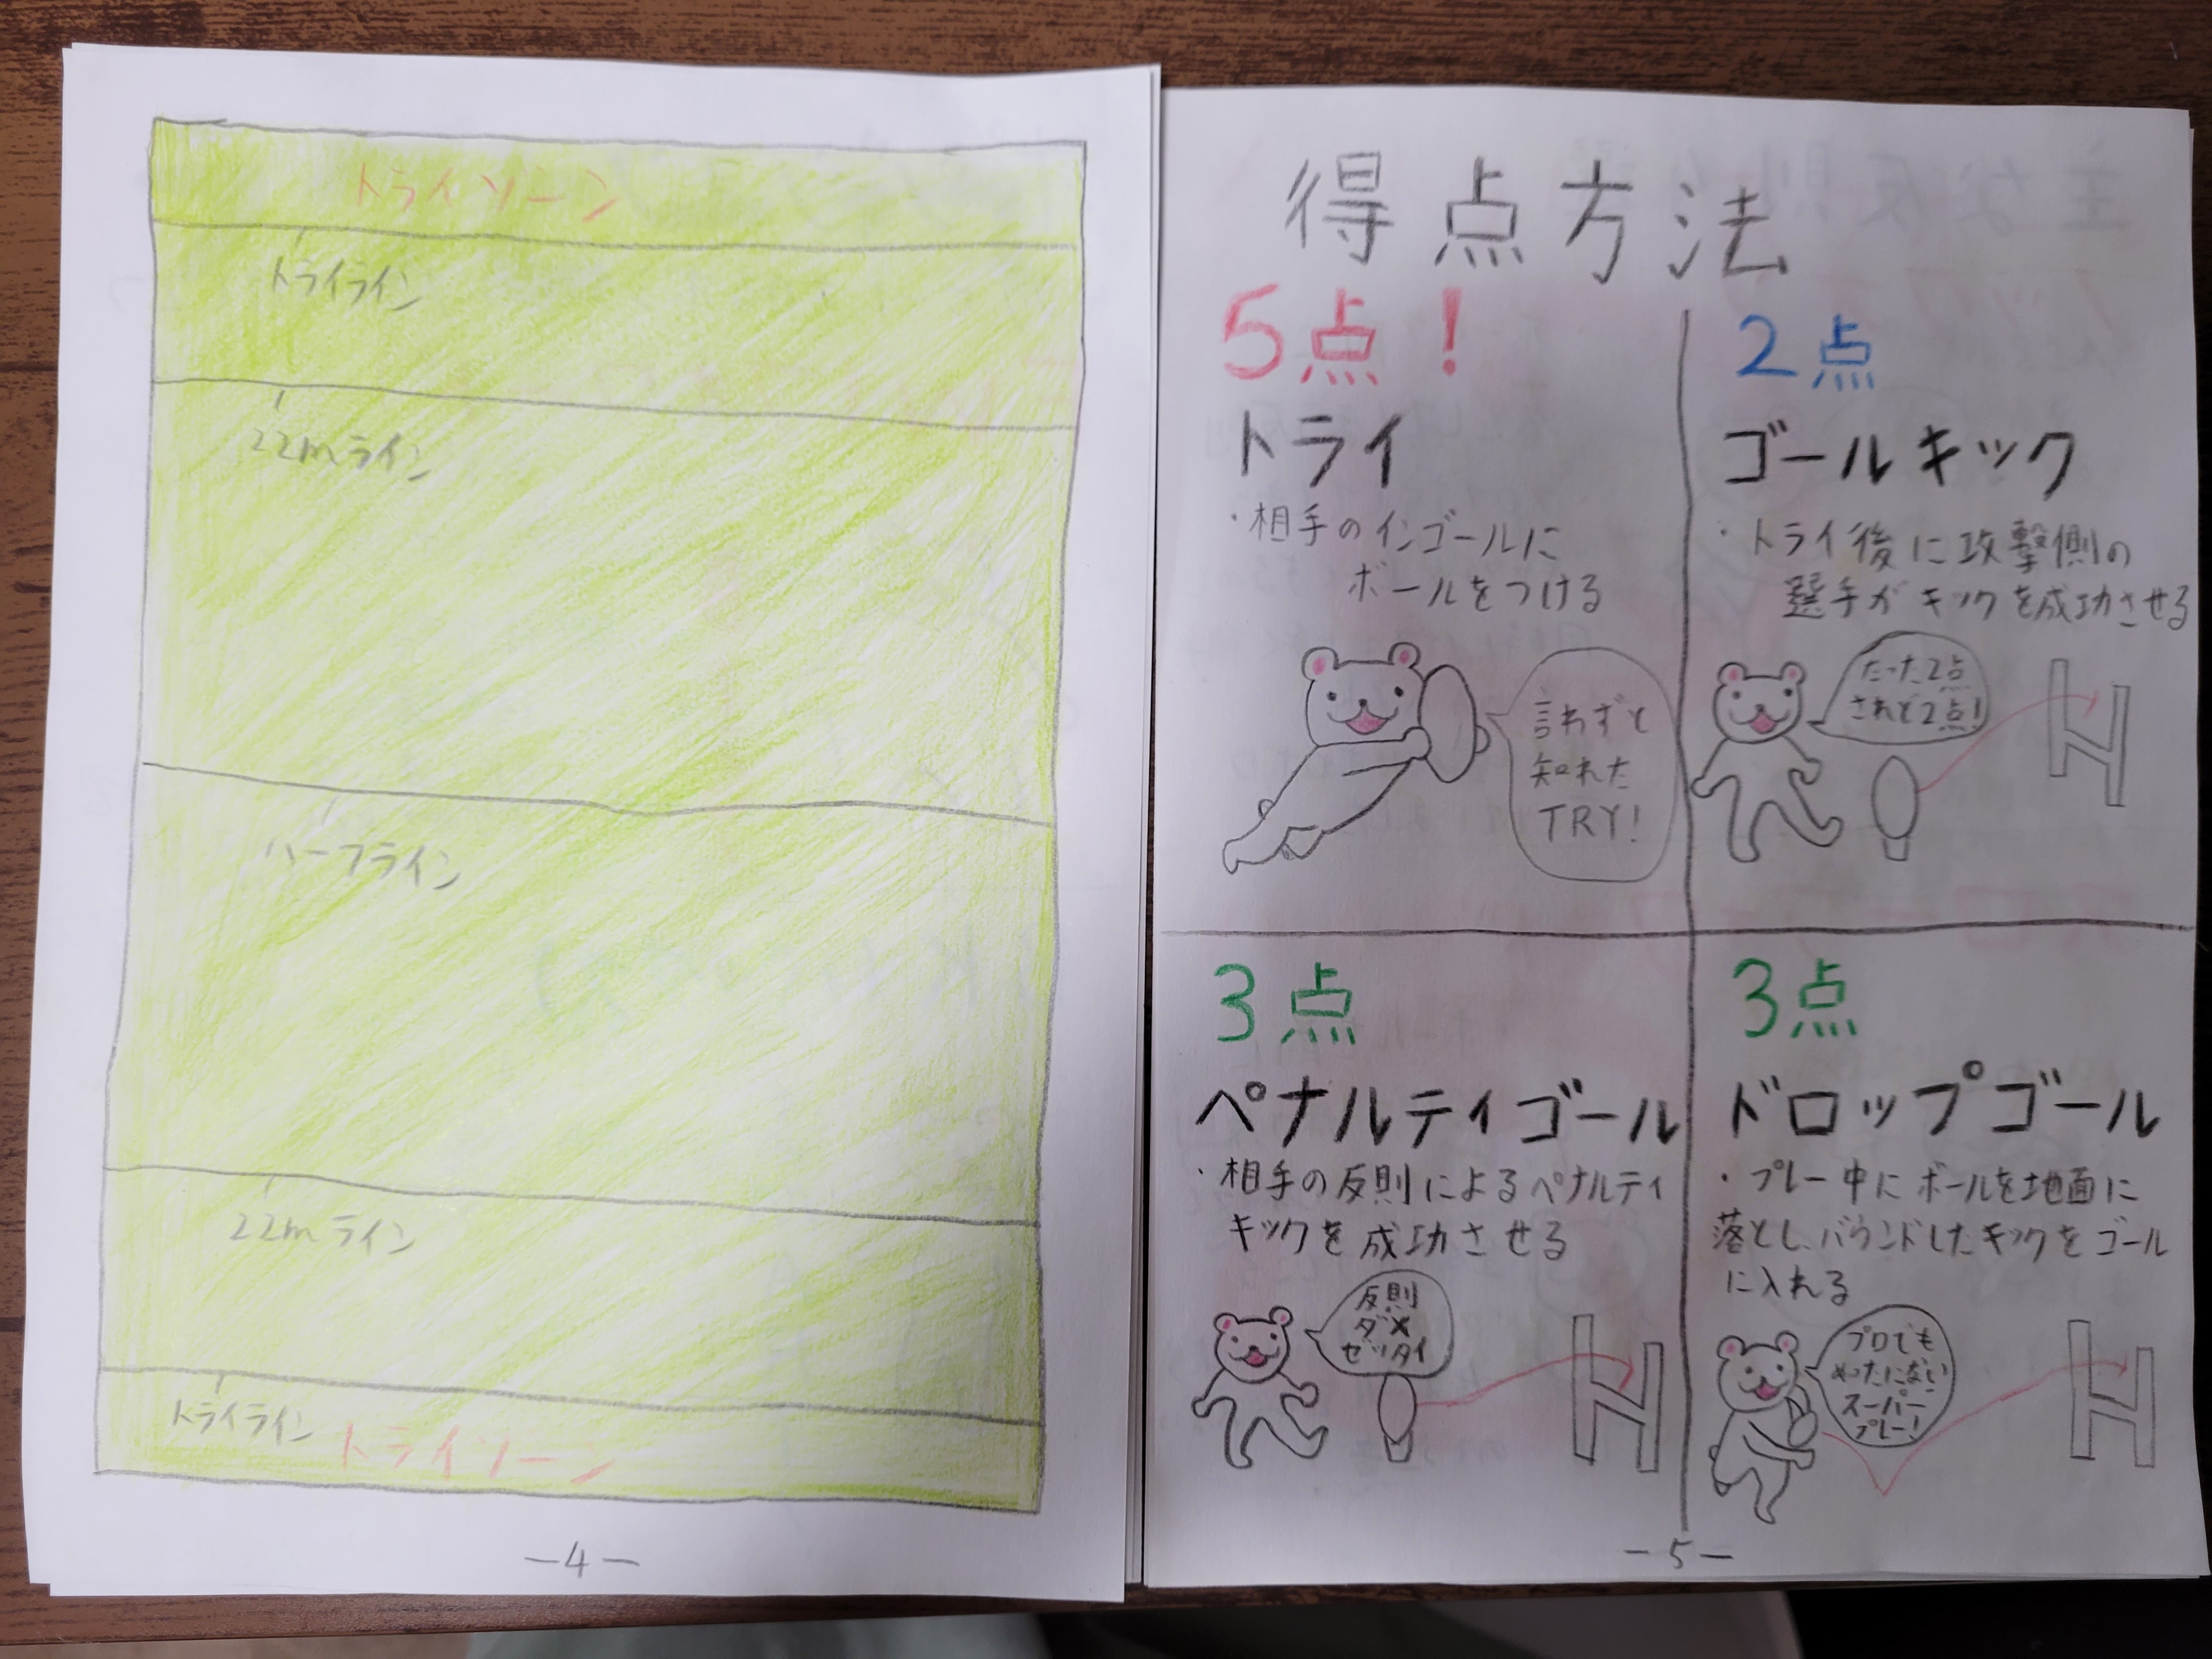 トライゾーン
トライライン
22mライン
ハーフライン
22mライン
トライライン
トライゾーン
－4－
得点方法
5点！
トライ
・相手のインゴールに
ボールをつける
言わずと
知れた
TRY!
2点
ゴールキック
・トライ後に攻撃側の
選手がキックを成功させる
たった2点
されど2点!
3点
ペナルティゴール
・相手の反則によるペナルティ
キックを成功させる
反則
ダメ
ゼッタイ
3点
ドロップゴール
・プレー中にボールを地面に
落とし、バウンドしたキックをゴール
に入れる
プロでも
めったにない
スーパー
プレー!
－5－